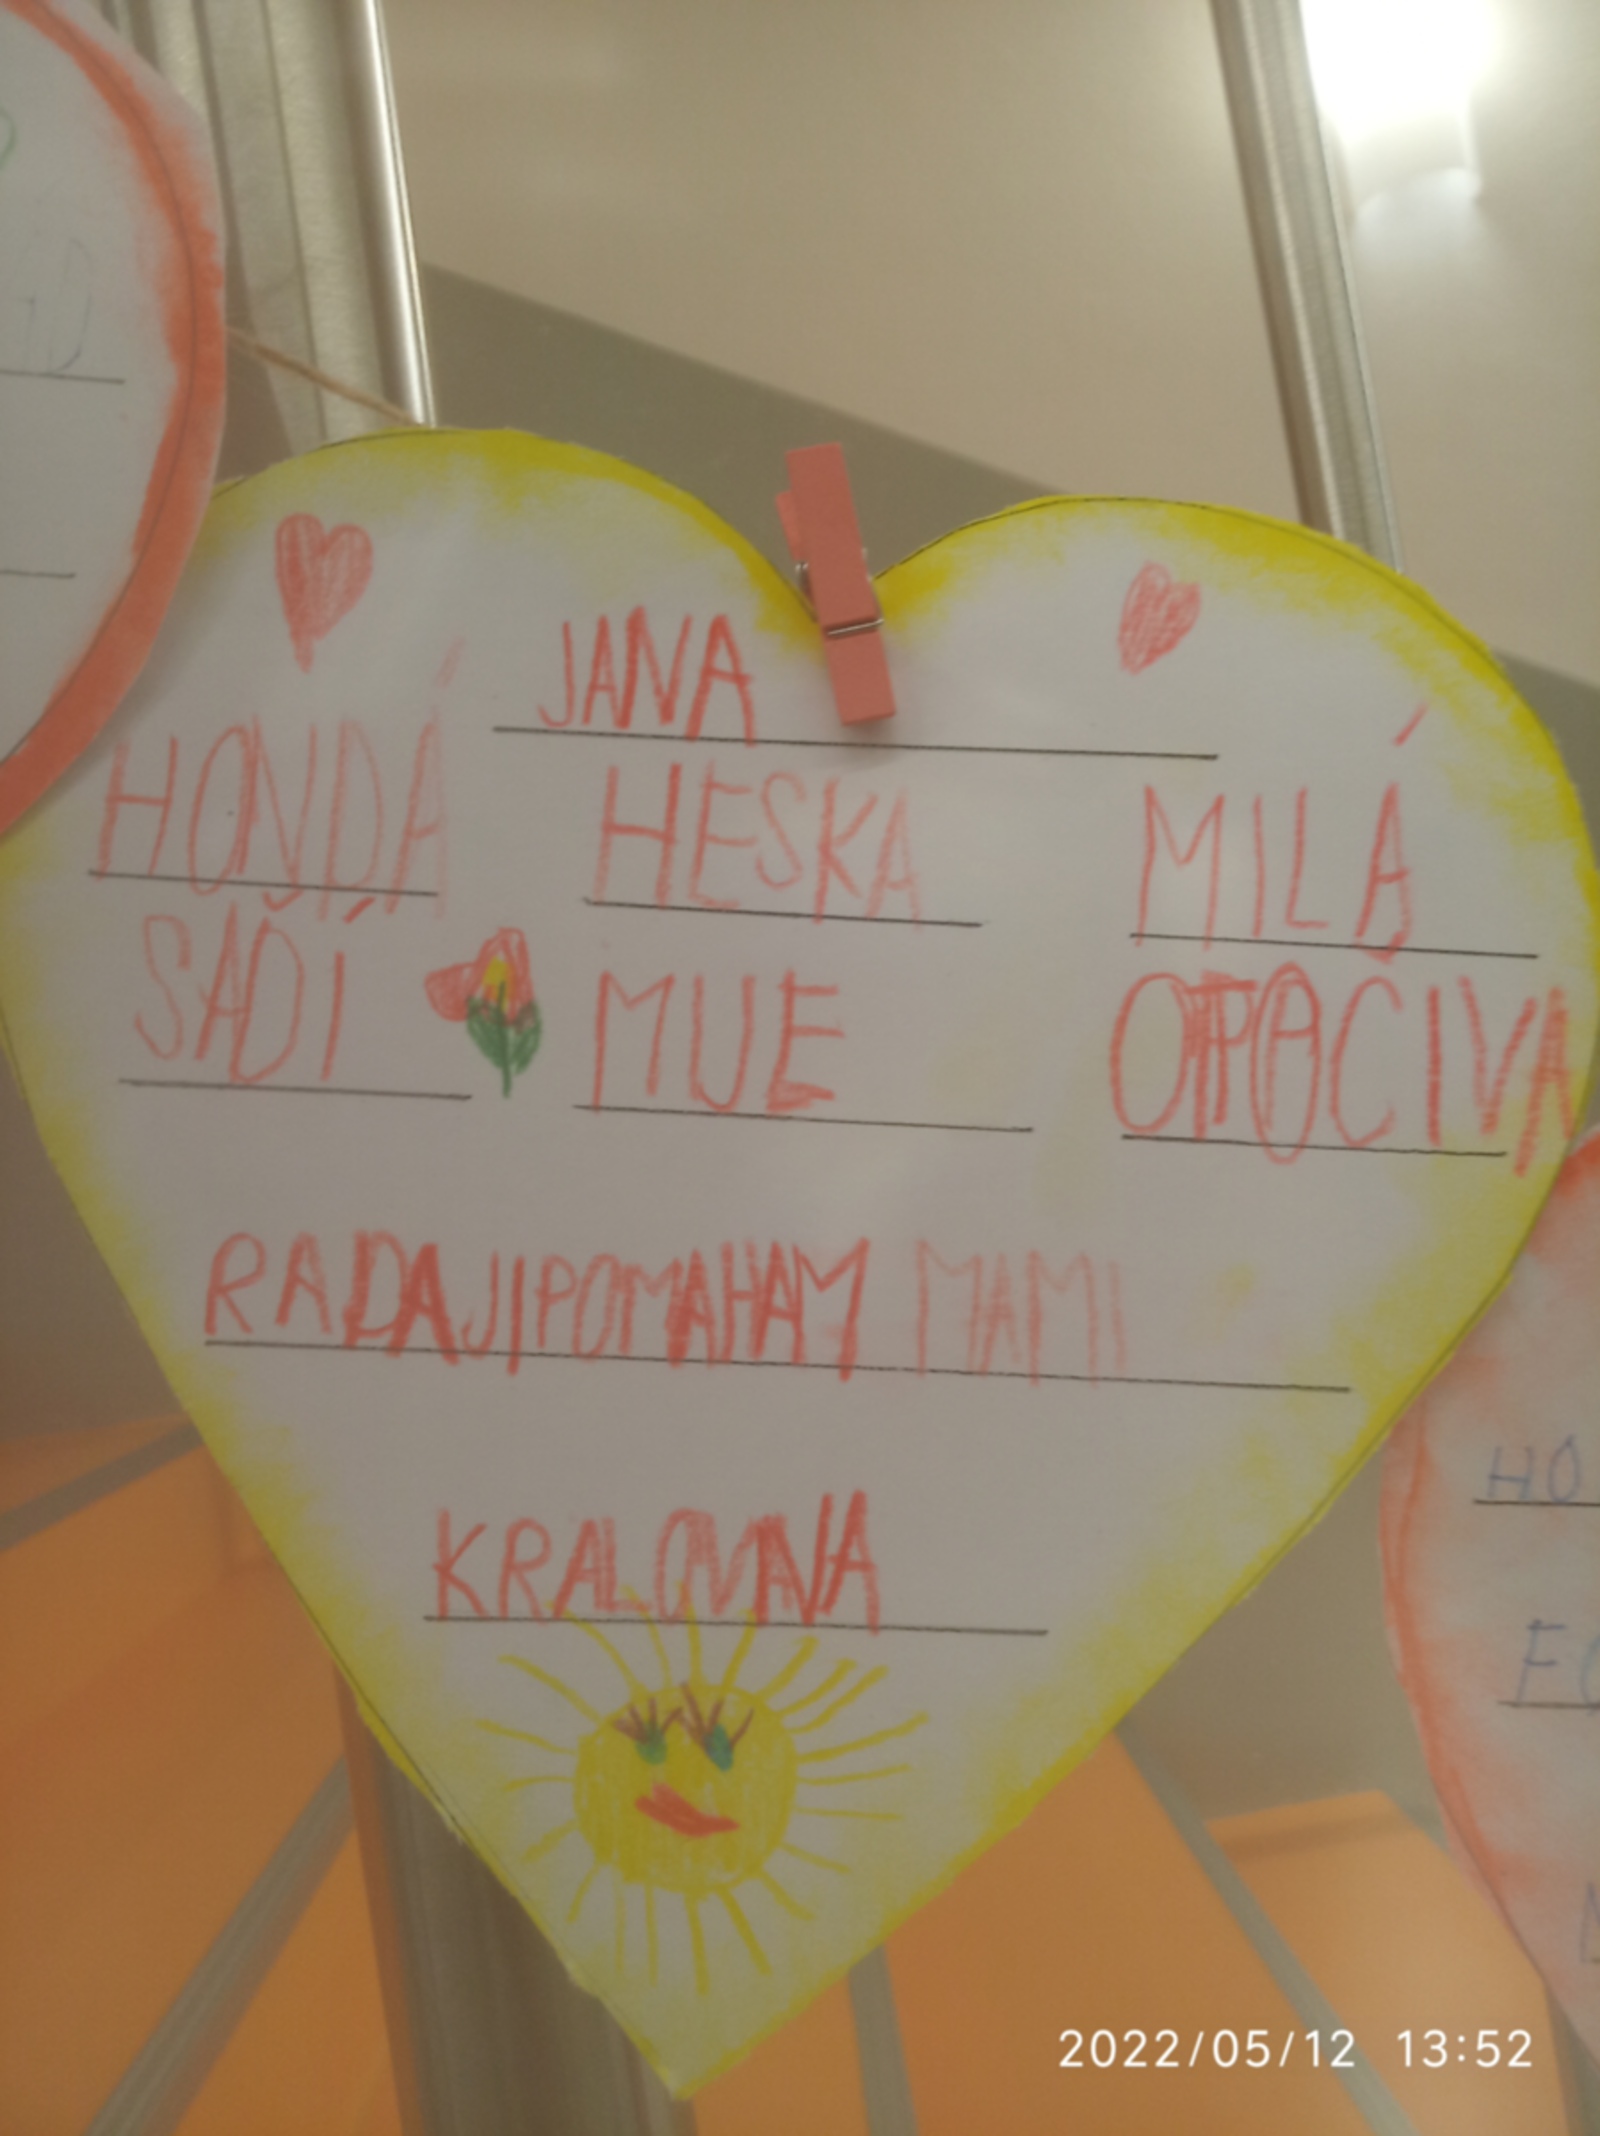 JANA
HONDÁ HESKA MILÁ
SADÍ MUE OTPOČIVA
RADAJIPOMAHAM MAMI
KRALOVNA
HO
2022/05/12 13:52